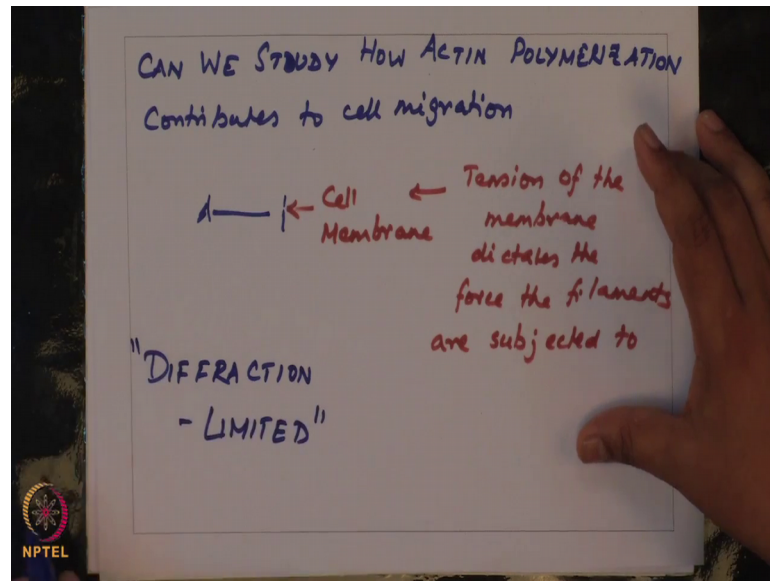 CAN WE STUDY HOW ACTIN POLYMERIZATION
Contributes to cell migration
← Cell
Membrane
← Tension of the
membrane
dictates the
force the filaments
are subjected to
"DIFFRACTION
- LIMITED"
NPTEL